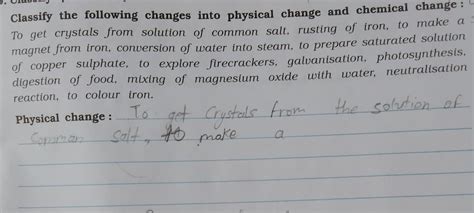 Classify the following changes into physical change and chemical change :
To get crystals from solution of common salt, rusting of iron, to make a
magnet from iron, conversion of water into steam, to prepare saturated solution
of copper sulphate, to explore firecrackers, galvanisation, photosynthesis,
digestion of food, mixing of magnesium oxide with water, neutralisation
reaction, to colour iron.
Physical change : To get Crystals from the solution of
Common Salt, to make a